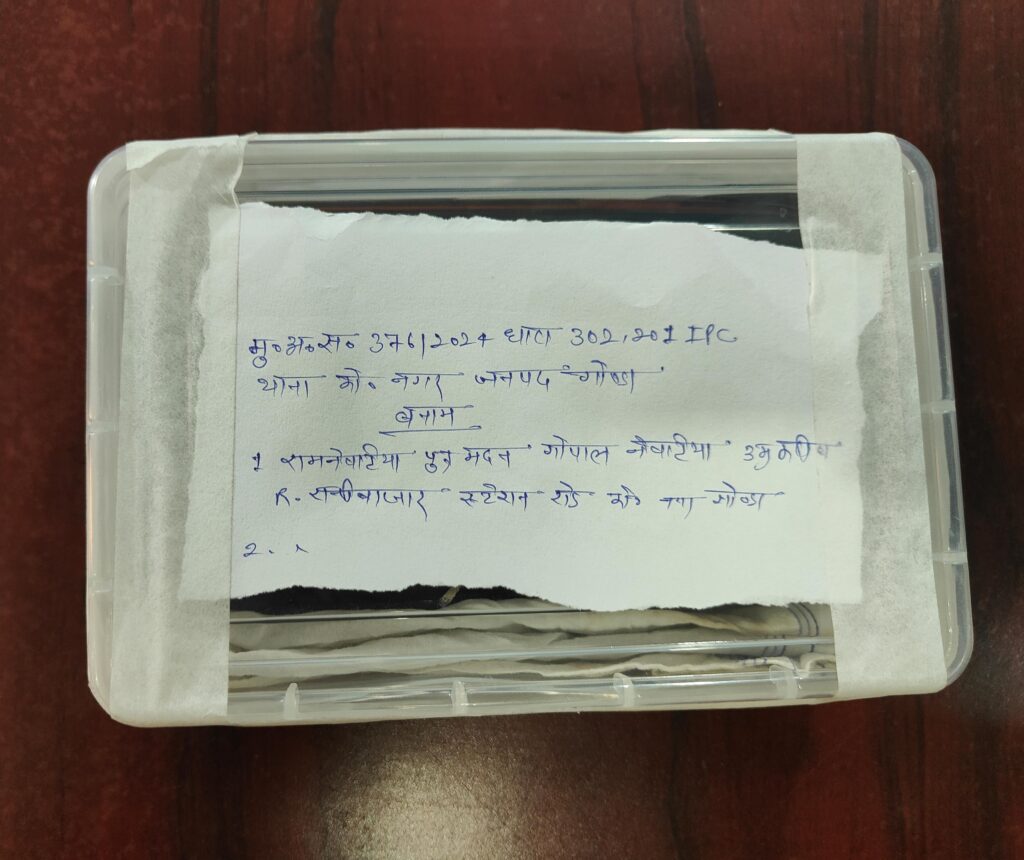 मु०अ०स० 376/2024 धारा 302,201 IPC
थाना को० नगर जनपद गोण्डा
बनाम
1 रामनेवाटिया पुत्र मदन गोपाल नेवाटिया उम्र करीब
R. सब्जीबाजार स्टेशन रोड को० नगर गोण्डा
2. x